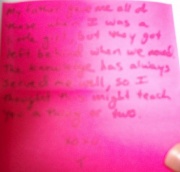 My father gave me all of
these when I was a
little girl, but they got
left behind when we moved.
The knowledge has always
served me well, so I
thought it might teach
you a thing or two.
xoxo